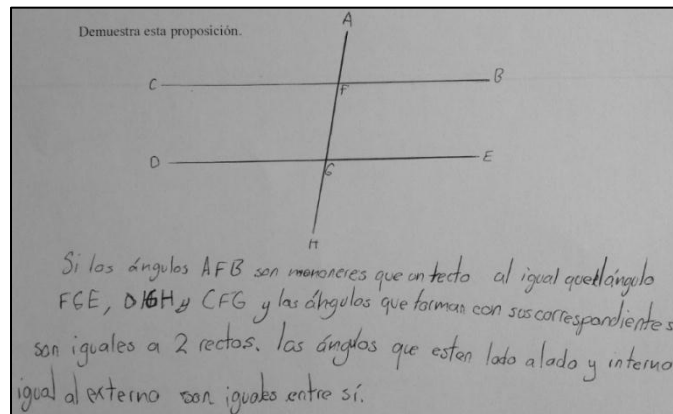 Demuestra esta proposición.
A
C
B
F
D
E
G
H
Si los ángulos AFB son menoneres que un recto al igual que ángulo
FGE, DGH y CFG y los ángulos que forman con sus correspondientes
son iguales a 2 rectos. los ángulos que esten lado a lado y interno
igual al externo son iguales entre sí.